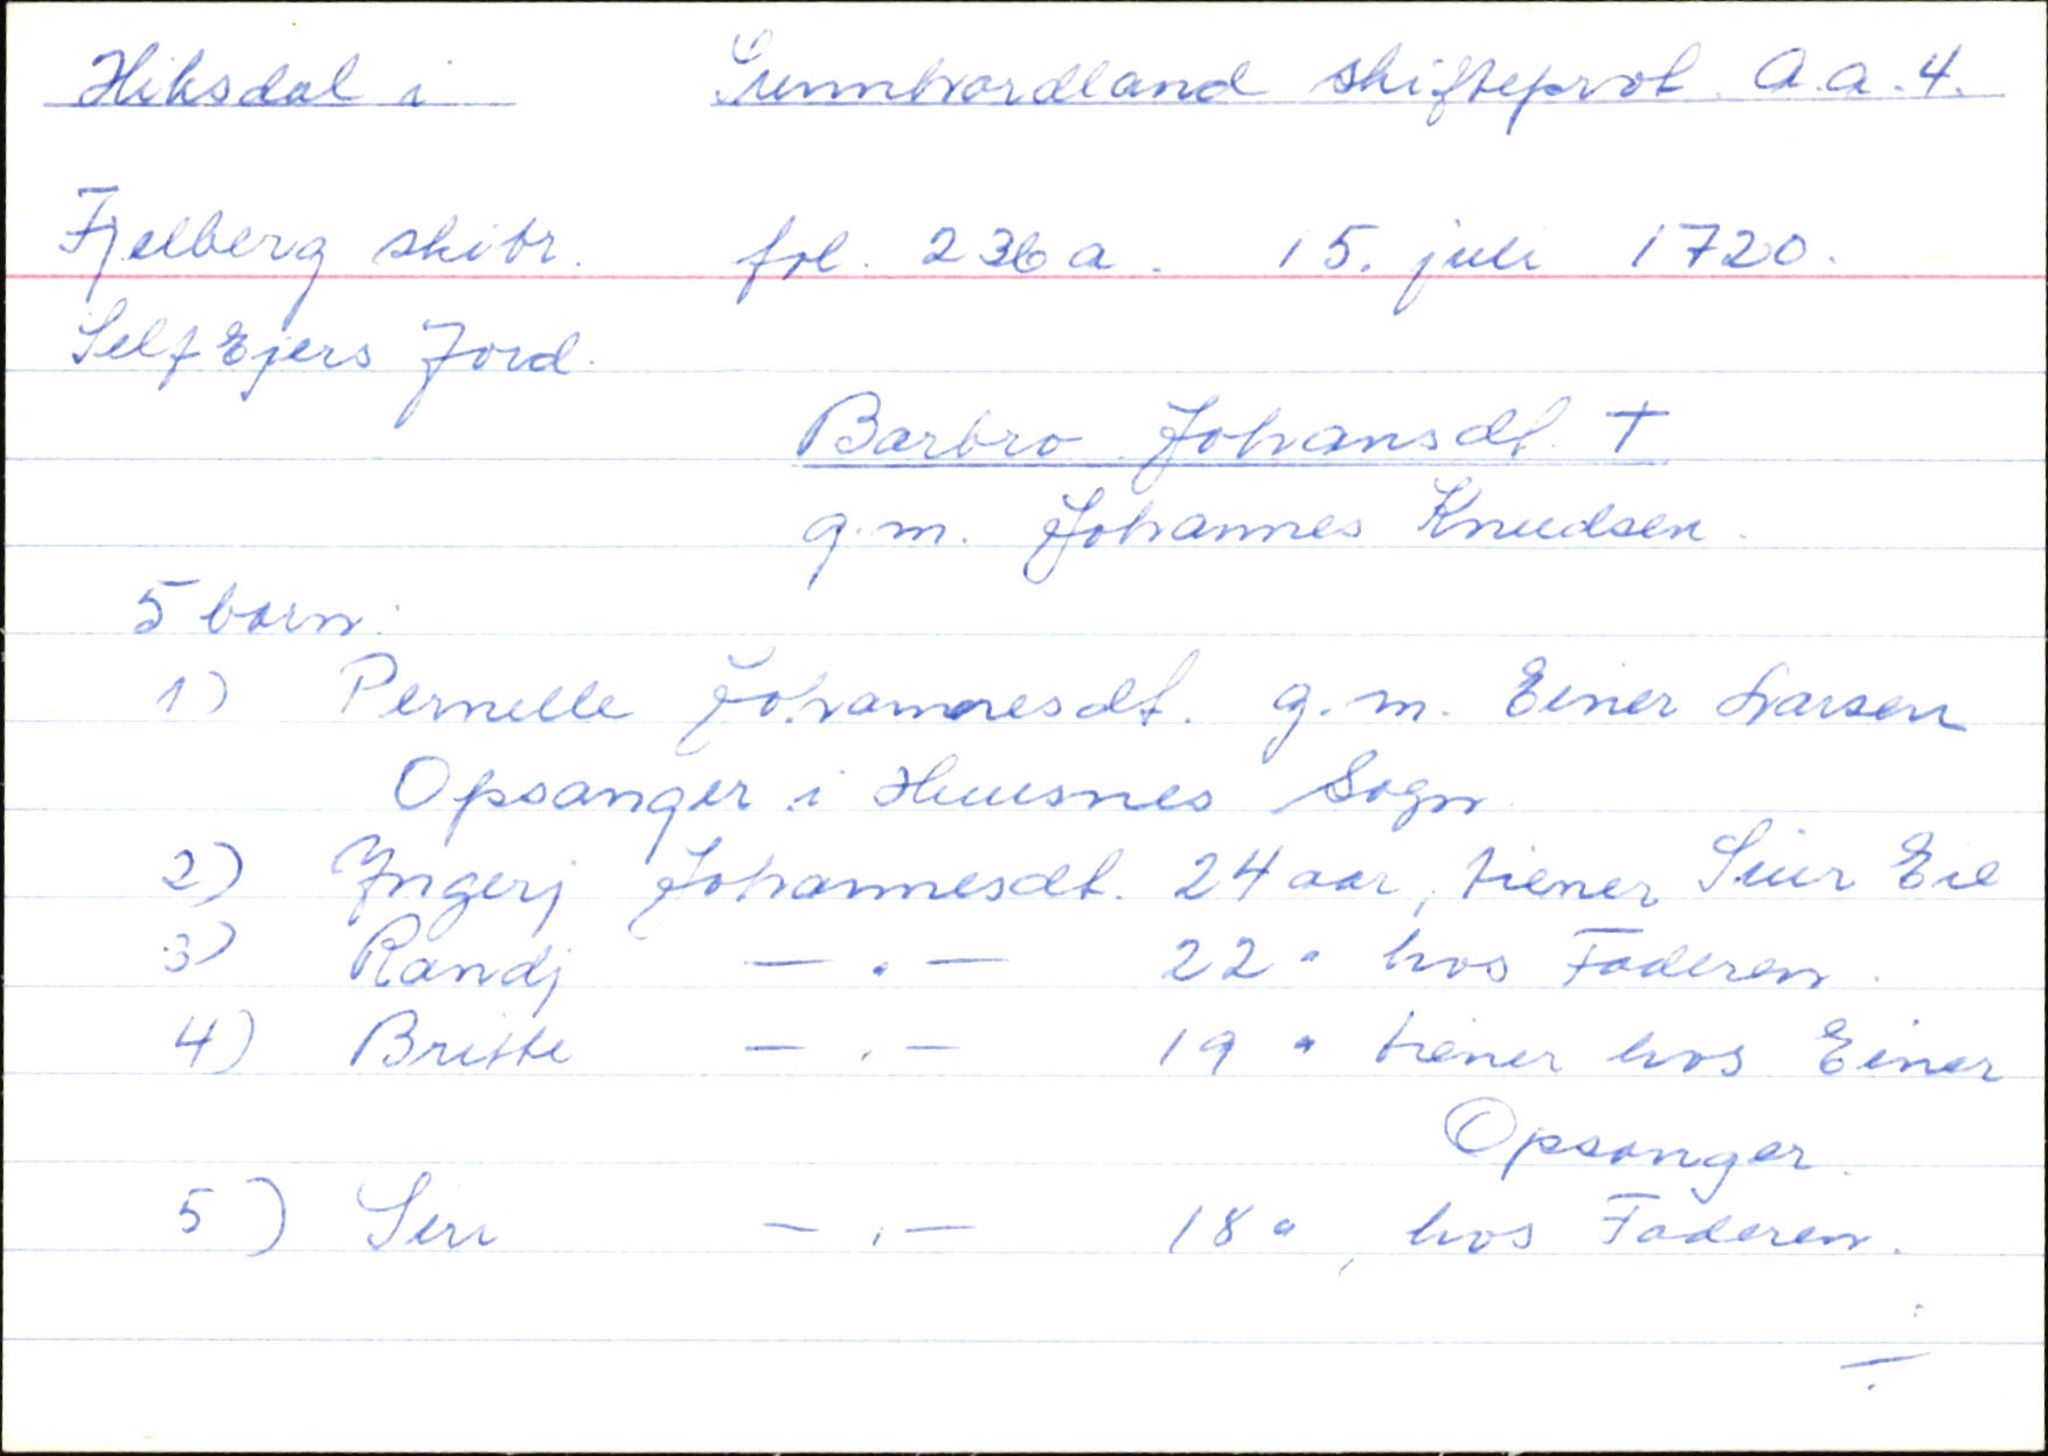 Hiksdal i Sunnhordland skifteprot. A.a.4.
Fjelberg skibr. fol. 236a. 15. juli 1720.
SelfEjers Jord.
Barbro Johansdt. †
g.m. Johannes Knudsen.
5 born:
1) Pernelle Johannesdt. g.m. Einer Larsen
Opsanger i Huusnes Sogn
2) Jngerj Johannesdt. 24 aar, tiener Siur Eie
3) Randj — . — 22 " hos Faderen.
4) Britte — . — 19 " tiener hos Einer
Opsanger.
5) Siri — . — 18 ", hos Faderen.